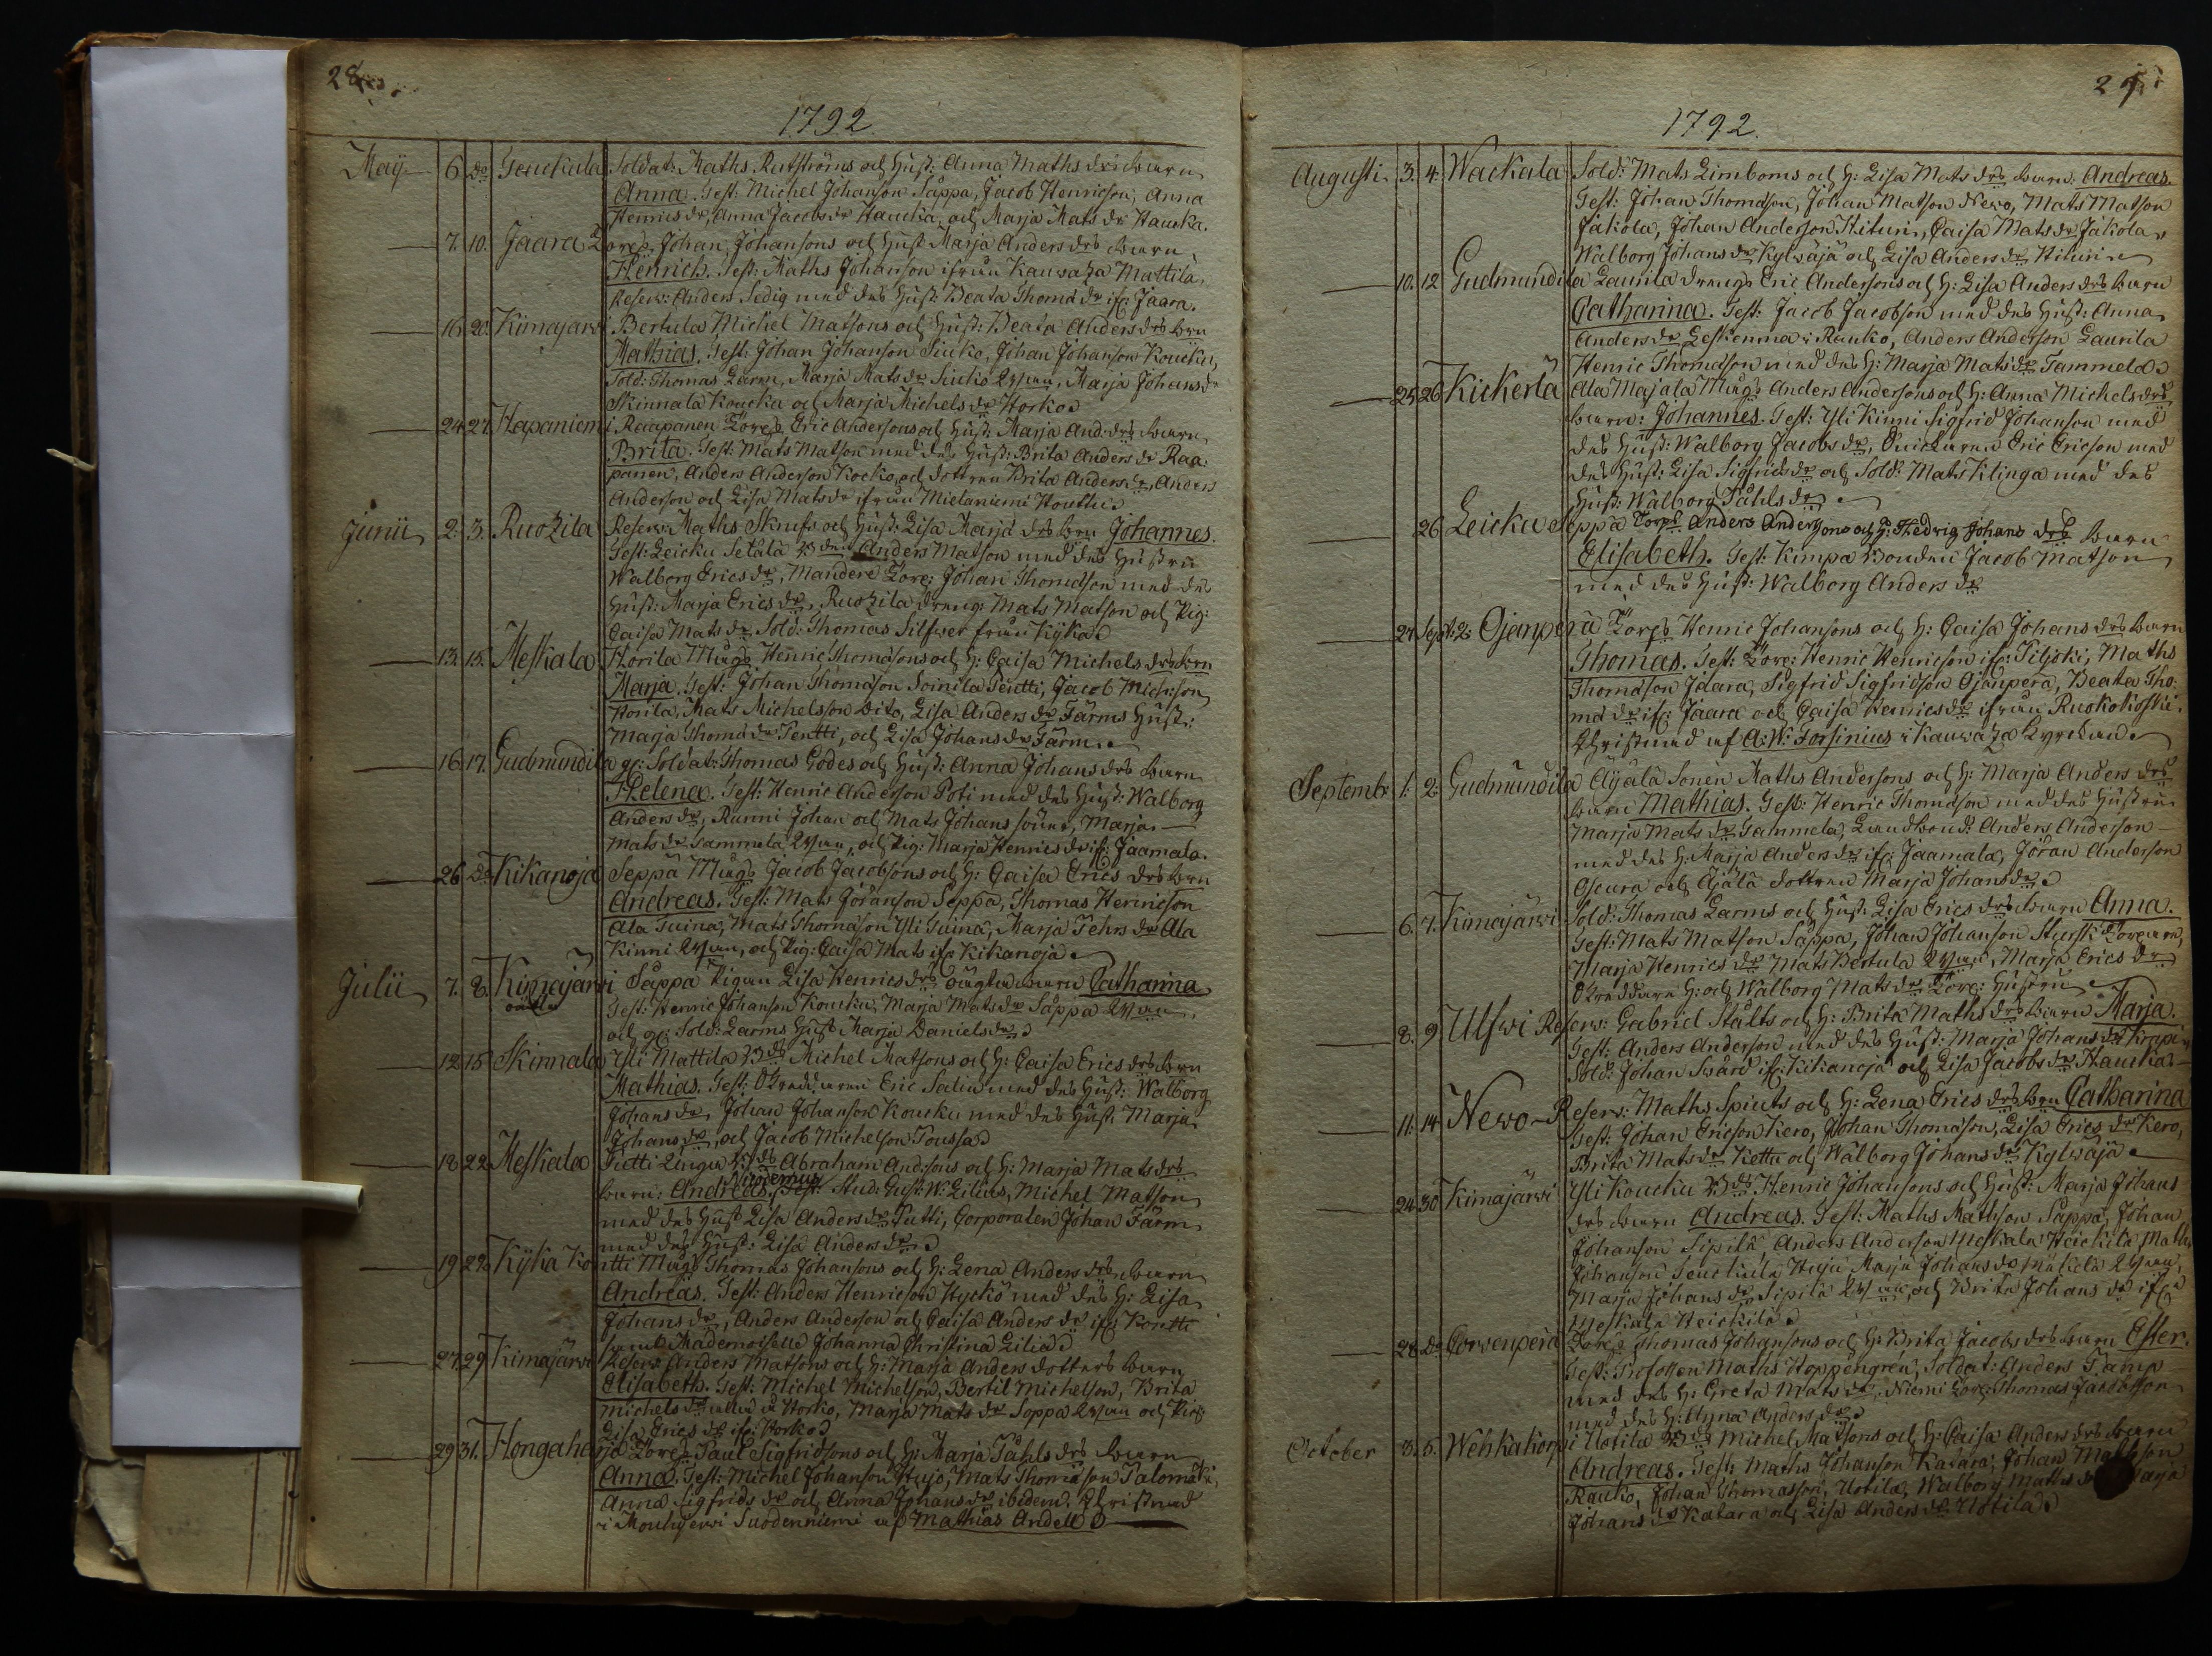 28
1792
May 6. do Gouckala Soldat: Maths Rutströms och Hust: Anna Maths drs barn
Anna. Test: Michel Johanson Sappa, Jacob Henricson, Anna
Henrics dr, Anna Jacobs dr Haucka, och Marja Mats dr Haucka.
7. 10. Jaara Torp. Johan Johansons och Hust Marja Anders drs barn
Henrich. Test: Maths Johanson ifrån Kauwaza Mattila,
Reserv: Anders Sedig med des Hust: Beata Thomæ dr if: Jaara.
16. 20. Kimajarvi Bertula Michel Matsons och Hust: Beata Anders drs brn
Mathias. Test: Johan Johanson Siuko, Johan Johanson Koucku,
Sold: Thomas Larm, Marja Mats dr Siukō, Marja Johans dr
Skinnala Koucku och Marja Michels dr Horko
24. 27. Hapaniemi Raapanen Torps Eric Andersons och Hust: Marja And: drs barn
Brita. Test: Mats Matson med des Hust: Brita Anders dr Raa-
panen, Anders Anderson Kocko, och dottren Brita Anders dr, Anders
Anderson och Lisa Mats dr ifrån Mielaniemi
Junii 2. 3. Ruozila Reserv: Maths Skrufs och Hust: Lisa Marja drs brn Johannes.
Test: Leicku Setälä Anders Matson med des Hustru
Walborg Erics dr, Mandere Torp: Johan Thomasson med des
Hust: Marja Erics dr, Ruozila dreng: Mats Matson och Pig:
Caisa Mats dr Sold: Thomas Silfwer från Kyka
13. 15. Meskala Horila Mågs Henric Thomasons och H: Caisa Michels drs brn
Marja. Test: Johan Thomason Soinila Pentti, Jacob Mich:son
Horila, Mats Michelsson dito, Lisa Anders dr Färms Hust:
Marja Thomæ dr Pentti, och Lisa Johans dr Färm
16. 17. Gudmundila gl: Soldat: Thomas Godes och Hust: Anna Johans drs barn
Helena. Test: Henric Anderson Poti med des Hust: Walborg
Anders dr, Runni Johan och Mats Johans söner, Marja
Mats dr Sammela, och Pig: Marja Henrics dr if: Jaamala.
26 do Kikanoja Seppä Mågs Jacob Jacobsons och H: Caisa Erics drs brn
Andreas. Test: Mats Jöranson Seppä, Thomas Henricson
Ala Tuina, Mats Thomason Yli Tuina, Marja Pehrs dr Ala
Kinni, och Pig: Caisa Mats if Kikanoja
Julii 7. 8. Kimajärvi Sappa Pigan Lisa Henrics drs oägta barn Catharina
Test: Henric Johanson Koucku, Marja Mats dr Sappa
och gl: Sold: Larms Hust Marja Daniels dr
12 15 Skinnala Yli Mattila Michel Matsons och H: Caisa Erics drs brn
Mathias. Test: Eric Salin med des Hust: Walborg
Johans dr, Johan Johanson Koucku med des Hust. Marja
Johans dr, och Jacob Michelson Toussa
18 22 Meskala Pietti Abraham And:sons och H: Marja Mats drs
Nicodemus
barn: Andreas. Test: Stud: Gust: W: Lilius, Michel Matson
med des Hust Lisa Anders dr Putti, Corporalen Johan Färm
med des Hust: Lisa Anders dr
19 22 Kyka Kontti Mågs Thomas Johansons och H: Lena Anders drs barn
Andreas. Test: Anders Henricson Hyckö med des H: Lisa
Johans dr, Anders Anderson och Caisa Anders dr if: Kontti
samt Mademoiselle Johanna Christina Lilia
27 29 Kimajärvi Reserv: Anders Matsons och H: Marja Anders dotters barn
Elisabeth. Test: Michel Michelson, Bertil Michelson, Brita
Michels dr Horko, Marja Mats dr Soppa och Pig
Lisa Erics dr if: Horko
29 31. Hongaharja Torps Paul Sigfridsons och H: Marja Påhls drs barn
Anna. Test: Michel Johanson Hujo, Mats Thomason Palomäki
Anna Sigfrids dr och Anna Johans dr ibidem. Christnad
i Mouhijervi Suodenniemi af Mathias Andell
29
1792.
Augusti 3. 4. Wackala Sold: Mats Limboms och H: Lisa Mats drs barn: Andreas.
Test: Johan Thomason, Johan Matson Nevo, Mats Matson
Jakola, Johan Anderson Hituri, Caisa Mats dr Jakola,
Walborg Johans dr Kylwäjä och Lisa Anders dr Hituri
10. 12 Gudmundila Laurila drengs Eric Andersons och H: Lisa Anders drs barn
Catharina. Test: Jacob Jacobson med des Hust: Anna
Anders dr Leskenmaa Rauko, Anders Anderson Laurila
Henric Thomason med des H: Marja Mats dr Tammela
25 26 Kickerla Ala Majala Mågs Anders Andersons och H: Anna Michels drs
barn: Johannes. Test: Yli Kinni Sigfrid Johanson med
des Hust: Walborg Jacobs dr, Eric Ericson med
des Hust: Lisa Sigfrids dr och Sold: Mats Klinga med des
Hust: Walborg Påhls dr
26 Leicku Seppä Torps Anders Andersons och H: Hedvig Johans drs barn
Elisabeth. Test: Kimpa Bonden Jacob Matson
med des Hust: Walborg Anders dr
27 Sept: 2: Ojanperä Torps Henric Johansons och H: Caisa Johans drs barn
Thomas. Test: Torp: Henric Henricson if: Piljoki, Maths
Thomason Jaara, Sigfrid Sigfridson Ojanperä, Beata Tho-
mæ dr if: Jaara och Caisa Henrics dr ifrån Ruokokoski.
Christnad af A: W: Forsinius i Kauwaza Kyrckan
Septembr 1. 2. Gudmundila Ajälä Sonen Maths Andersons och H: Marja Anders drs
barn Mathias. Test: Henric Thomason med des Hustru
Marja Mats dr Sammela, Landbond: Anders Anderson
med des H: Marja Anders dr if: Jaamala, Jöran Anderson
Oscara och Ajälä dottren Marja Johans dr
6. 7. Kimajärvi Sold: Thomas Larms och Hust: Lisa Erics drs barn Anna.
Test: Mats Matson Sappa, Johan Johanson
Marja Henrics dr Mats Bertula, Marja Erics dr
H: och Walborg Mats dr Torp: Hustru
8. 9 Ulfwi Reserv: Gabriel Stålts och H: Brita Maths drs barn Marja.
Test: Anders Anderson med des Hust: Marja Johans dr Krapi
Sold: Johan Swärd if: Kikanoja och Lisa Jacobs dr Haucka
11. 14 Nevo- Reserv: Maths Spiuts och H: Lena Erics drs brn Catharina
Test: Johan Ericson Kero, Johan Thomason, Lisa Erics dr Kero,
Brita Mats dr Kettu och Walborg Johans dr Kylwäjä
24 30 Kimajärvi Yli Koucku Henric Johansons och Hust: Marja Johans
drs barn Andreas. Test: Maths Mathson Sappa, Johan
Johanson Sipilä, Anders Anderson Meskala Heickilä, Maths
Johanson Huju Marja Johans dr
Marja Johans dr Sipilä och Brita Johans dr if
Meskala Heickilä
28 do Corvenperä Torps Thomas Johansons och H: Brita Jacobs drs barn Ester.
Test: Profossen Maths Hoppengren, Soldat: Anders Tamp
med des H: Greta Mats dr, Niemi Torp: Thomas Jacobsson
med des H: Anna Anders dr
October 3. 5. Wehkakorpi Uotila Michel Matsons och H: Caisa Anders drs barn
Andreas. Test: Maths Johanson Katara, Johan Mathson
Rauko, Johan Thomasson, Uotila, Walborg Maths dr Marja
Johans dr Katara och Lisa Anders dr Uotila